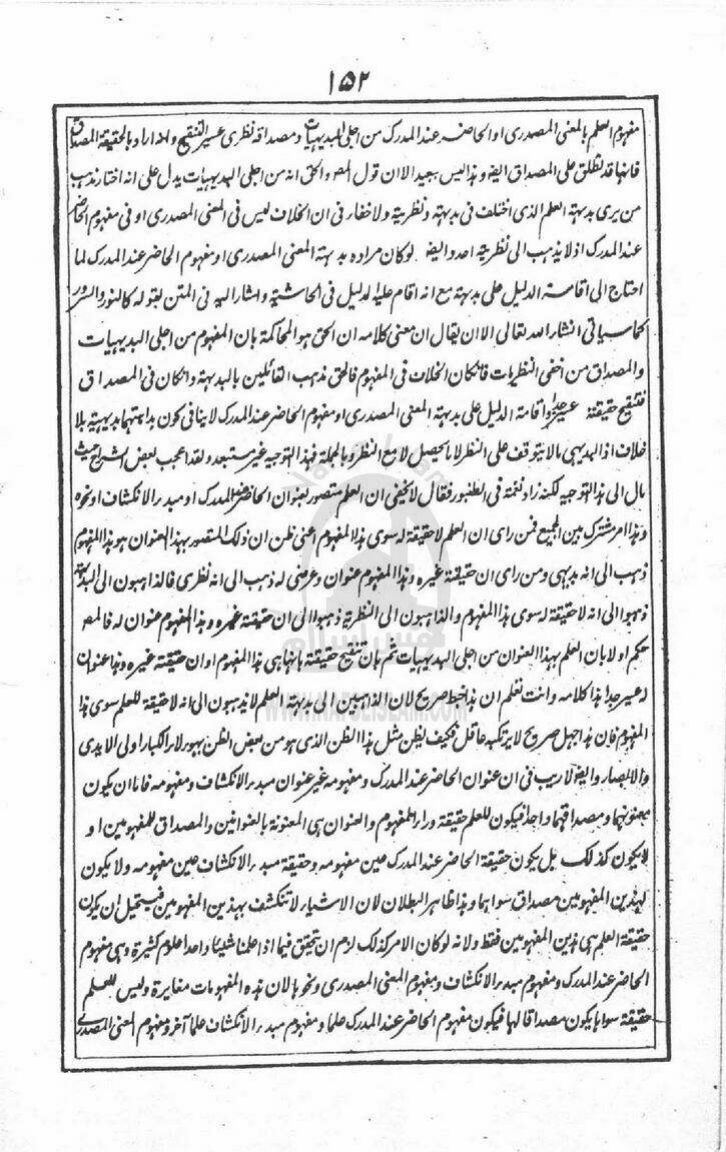 ۱۵۲
مفهوم العلم بالمعنى المصدرى او الحاضر عند المدرك من اجلى البديهيات ومصداقه نظرى عسير التنقيح واذا اراد بالحقيقة المصداق
فانها قد تطلق على المصداق ايضا وهذا ليس ببعيد الا ان قول المصـ والحق انه من اجلى البديهيات يدل على انه اختار مذهب
من يرى بديهة العلم الذى اختلف فى بديهته ونظريته ولا خفاء فى ان الخلاف ليس فى المعنى المصدرى او فى مفهوم الحاضر
عند المدرك اذ لا يذهب الى نظرية احد وايضا لو كان مراده بديهة المعنى المصدرى او مفهوم الحاضر عند المدرك لما
احتاج الى اقامة الدليل على بديهته مع انه اقام عليه الدليل فى الحاشية واشار اليه فى المتن بقوله كالنور والسرور
كما سياتى انشاء الله تعالى الا ان يقال ان معنى كلامه ان الحق هو المحاكمة بان المفهوم من اجلى البديهيات
والمصداق من اخفى النظريات فان كان الخلاف فى المفهوم فالحق مذهب القائلين بالبديهة وان كان فى المصداق
فتنقيح حقيقته عسير جدا واقامة الدليل على بديهة المعنى المصدرى او مفهوم الحاضر عند المدرك لا ينافى كون بداهتهما بديهية بلا
خلاف اذ البديهى ما لا يتوقف على النظر لا ما لا يحصل مع النظر وبالجملة فهذا التوجيه غير مستبعد ولقد اعجب بعض الشراح حيث
مال الى هذا التوجيه لكنه زاد نغمة فى الطنبور فقال لا يخفى ان العلم متصور بعنوان الحاضر عند المدرك او مبدء الانكشاف او نحوه
وهذا امر مشترك بين الجميع فمن راى ان العلم لا حقيقة له سوى هذا المفهوم اعنى ظن ان ذلك المتصور بهذا العنوان هو هذا المفهوم
ذهب الى انه بديهى ومن راى ان حقيقته غيره وهذا المفهوم عنوان وعرضى له ذهب الى انه نظرى فالذاهبون الى البديهة
ذهبوا الى انه لا حقيقة له سوى هذا المفهوم والذاهبون الى النظرية ذهبوا الى ان حقيقته غيره وهذا المفهوم عنوان له فالمصـ
حكم اولا بان العلم بهذا العنوان من اجلى البديهيات ثم بان تنقيح حقيقته بانها هى هذا المفهوم او ان حقيقته غيره وهذا عنوان
له عسير جدا هذا كلامه وانت تعلم ان هذا خبط صريح لان الذاهبين الى بديهة العلم لا يذهبون الى انه لا حقيقة للعلم سوى هذا
المفهوم فان هذا جهل صريح لا يرتكبه عاقل فكيف يظن مثل هذا الظن الذى هو من بعض الظن بهؤلاء الكبار اولى الايدى
والابصار وايضا لا ريب فى ان عنوان الحاضر عند المدرك ومفهومه غير عنوان مبدء الانكشاف ومفهومه فاما ان يكون
معنونهما ومصداقهما واحدا فيكون للعلم حقيقة وراء المفهوم والعنوان هى المعنونة بالعنوانين والمصداق للمفهومين او
لا يكون كذلك بل يكون حقيقة الحاضر عند المدرك عين مفهومه وحقيقة مبدء الانكشاف عين مفهومه ولا يكون
لهذين المفهومين مصداق سواهما وهذا ظاهر البطلان لان الاشياء لا تنكشف بهذين المفهومين فيستحيل ان يكون
حقيقة العلم هى هذين المفهومين فقط ولانه لو كان الامر كذلك لزم ان تتحقق فيما اذا علمنا شيئا واحدا علوم كثيرة وهى مفهوم
الحاضر عند المدرك ومفهوم مبدء الانكشاف ومفهوم المعنى المصدرى ونحوها لان هذه المفهومات مغايرة وليس للعلم
حقيقة سواها يكون مصداقا لها فيكون مفهوم الحاضر عند المدرك علما ومفهوم مبدء الانكشاف علما آخر ومفهوم المعنى المصدرى